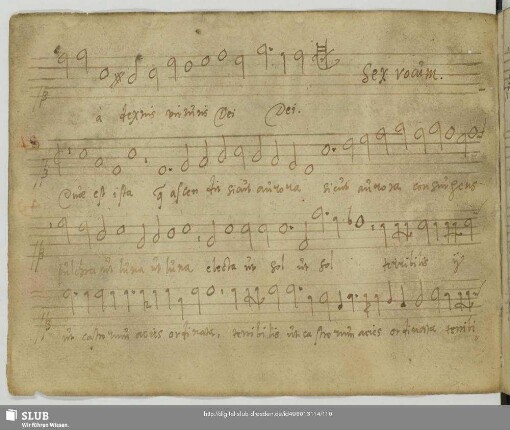 à dextris virtutis Dei Dei.
Sex vocum.
Quae est ista q ascendit sicut aurora sicut aurora consurgens
pulchra ut luna ut luna electa ut sol ut sol terribilis ij
ut castrorum acies ordinata, terribilis ut castrorum acies ordinata terribi
SLUB
Wir führen Wissen.
http://digital.slub-dresden.de/id496015114/110